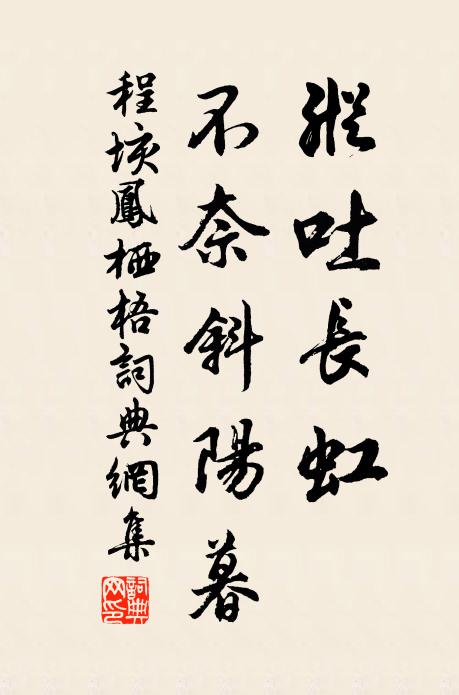 縱吐長虹
不奈斜陽暮
程垓鳳栖梧詞典網集
詞典网印